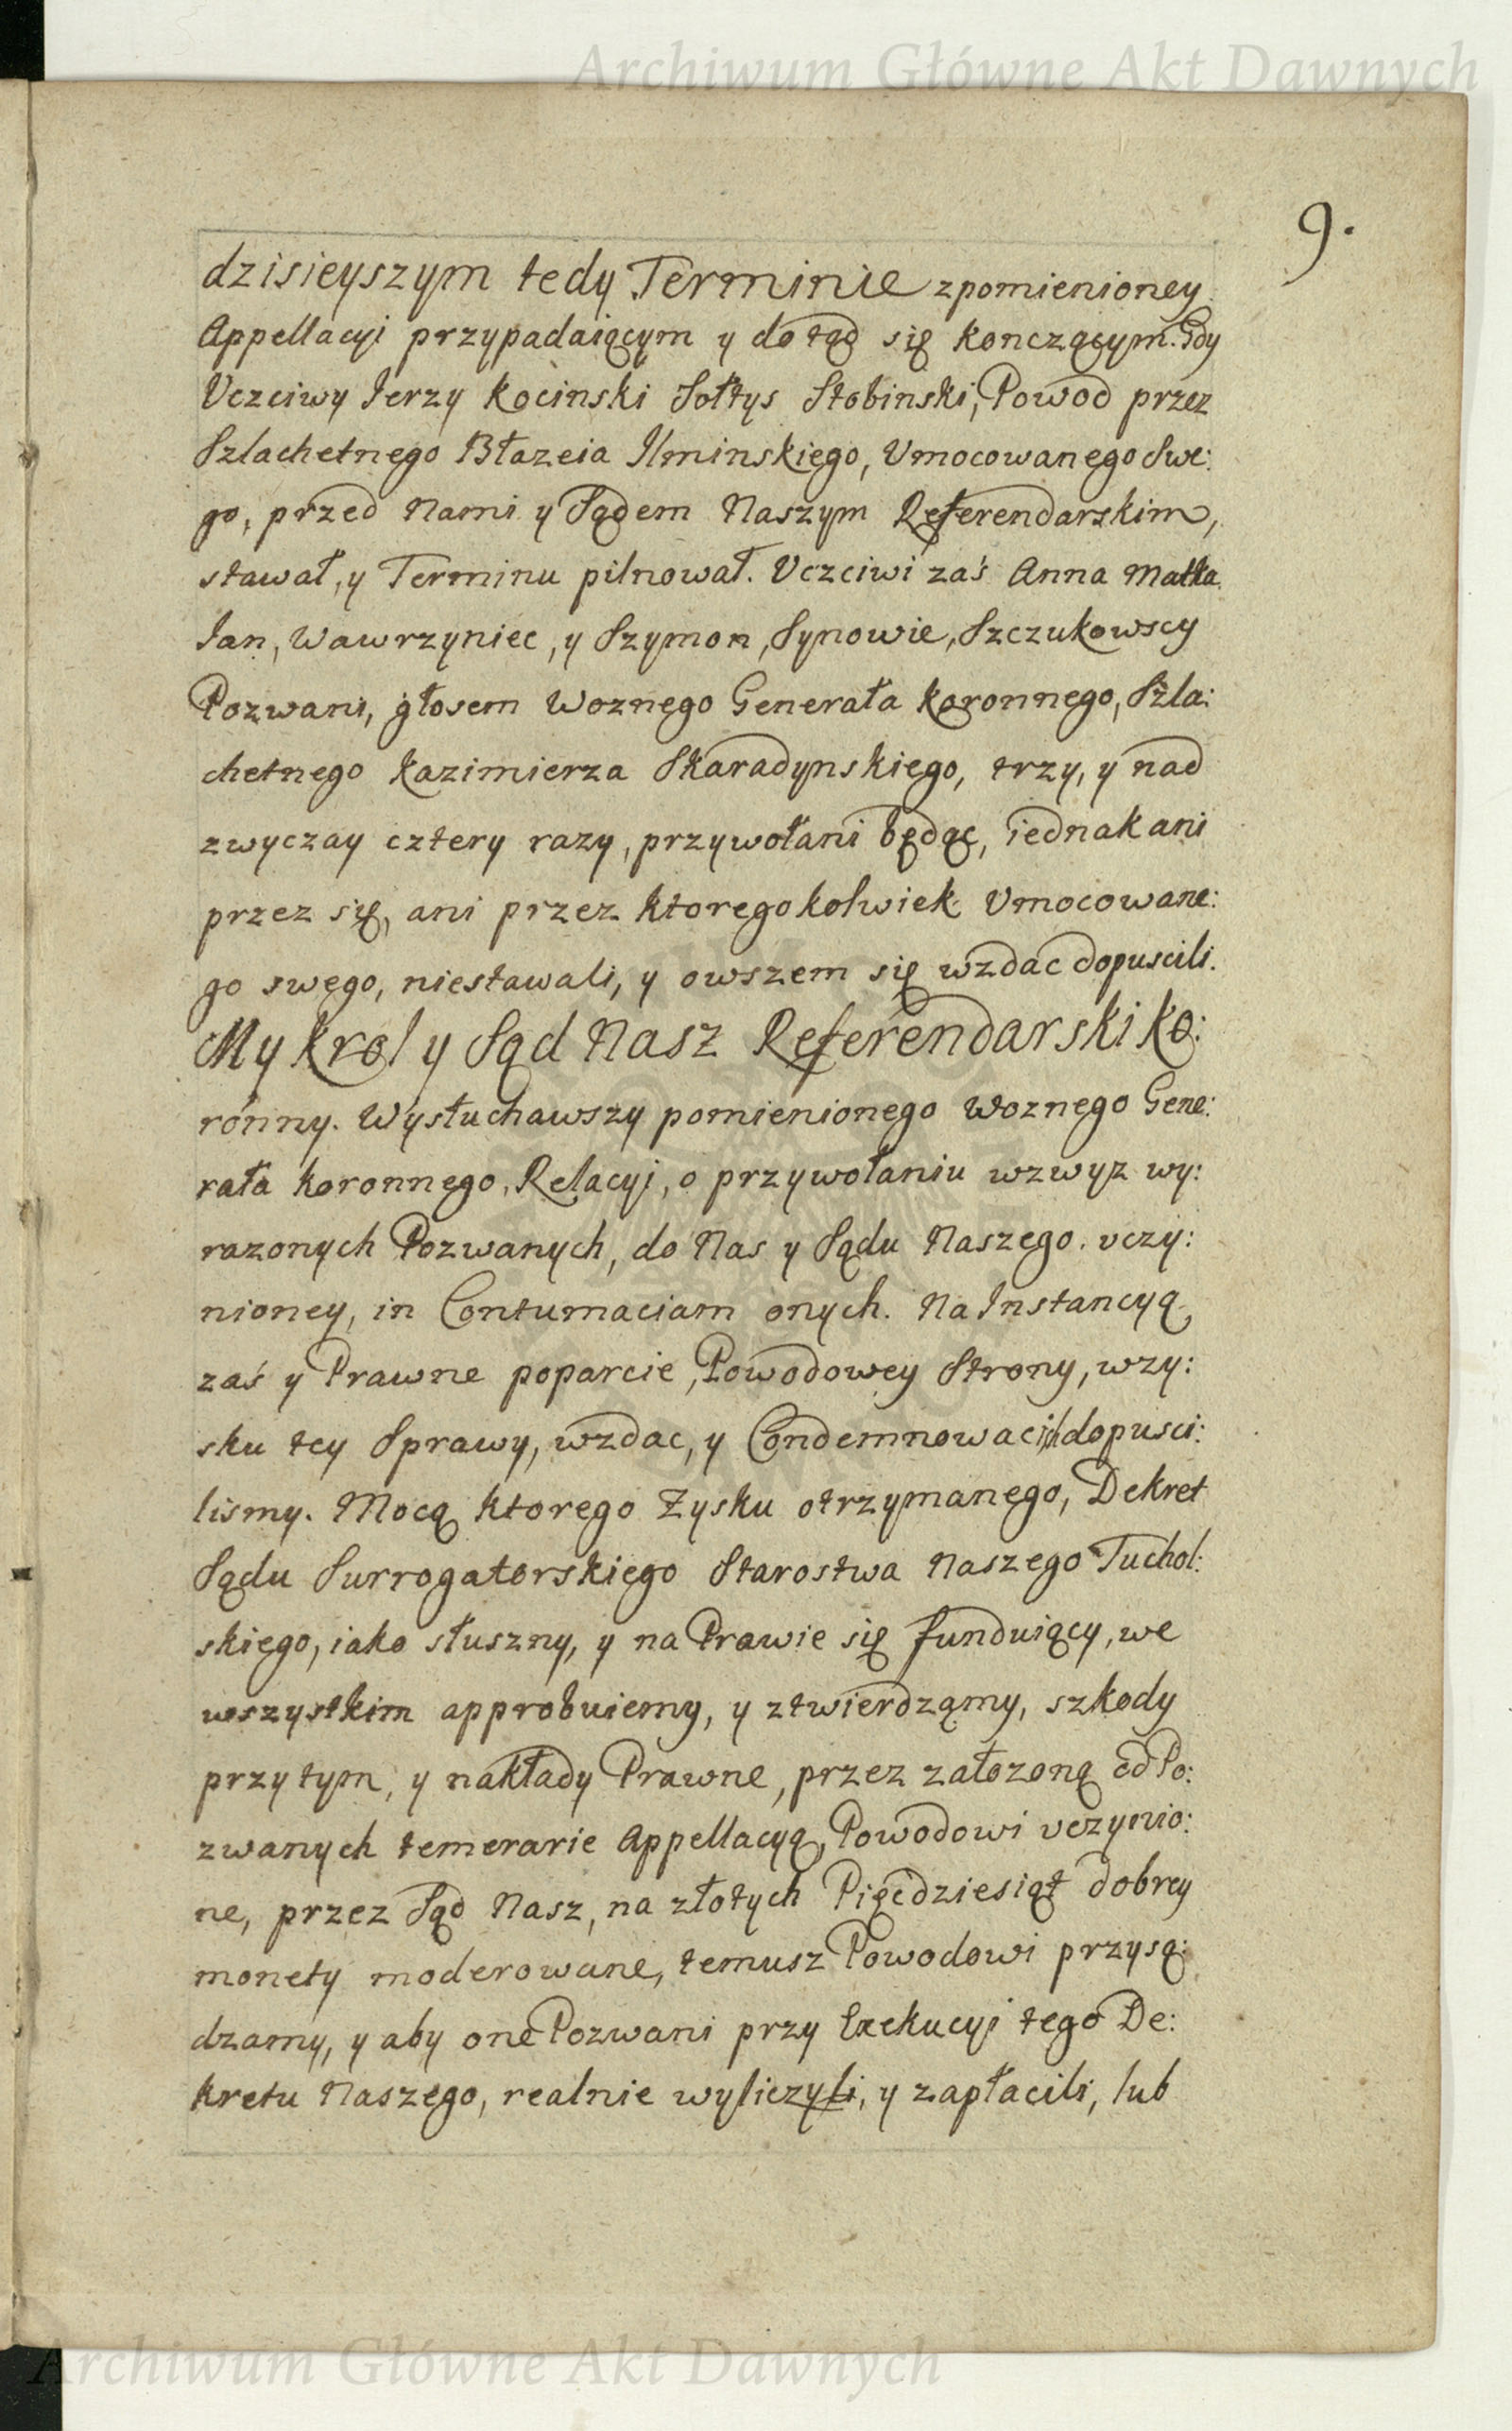 Archiwum Główne Akt Dawnych
9.
dzisieyszym tedy Terminie zpomienioney
Appellacyi przypadaiącym y dotąd się konczącym. Gdy
Vczciwy Ierzy Kocinski Sołtys Stobinski, Powod przez
Szlachetnego Błazeia Ilminskiego, Vmocowanego Swe:
go, przed Nami y Sądem Naszym Referendarskim,
stawał, y Terminu pilnował. Vczciwi zaś Anna Matka
Ian, Wawrzyniec, y Szymon, Synowie, Szczukowscy
Pozwani, głosem Woznego Generała Koronnego, Szla:
chetnego Kazimierza Skaradynskiego, trzy, y nad
zwyczay cztery razy, przywołani będąc, iednak ani
przez się, ani przez ktoregokolwiek Vmocowane:
go swego, niestawali, y owszem się wzdac dopuscili.
My Krol y Sąd Nasz Referendarski Ko:
ronny. Wysłuchawszy pomienionego Woznego Gene:
rała Koronnego, Relacyi, o przywołaniu wzwyz wy:
razonych Pozwanych, do Nas y Sądu Naszego. vczy:
nioney, in Contumaciam onych. Na Instancyą
zaś y Prawne poparcie, Powodowey Strony, wzy:
sku tey Sprawy, wzdac, y Condemnowac ich dopusci:
lismy. Mocą ktorego Zysku otrzymanego, Dekret
Sądu Surrogatorskiego Starostwa Naszego Tuchol:
skiego, iako słuszny, y na Prawie się funduiący, we
wszystkim approbuiemy, y ztwierdzamy, szkody
przytym, y nakłady Prawne, przez załozoną od Po:
zwanych temerarie Appellacyą, Powodowi vczynio:
ne, przez Sąd Nasz, na złotych Pięcdziesiąt dobrey
monety moderowane, temusz Powodowi przysą:
dzamy, y aby one Pozwani przy Exekucyi tego De:
kretu Naszego, realnie wyliczyli, y zapłacili, lub
Archiwum Główne Akt Dawnych